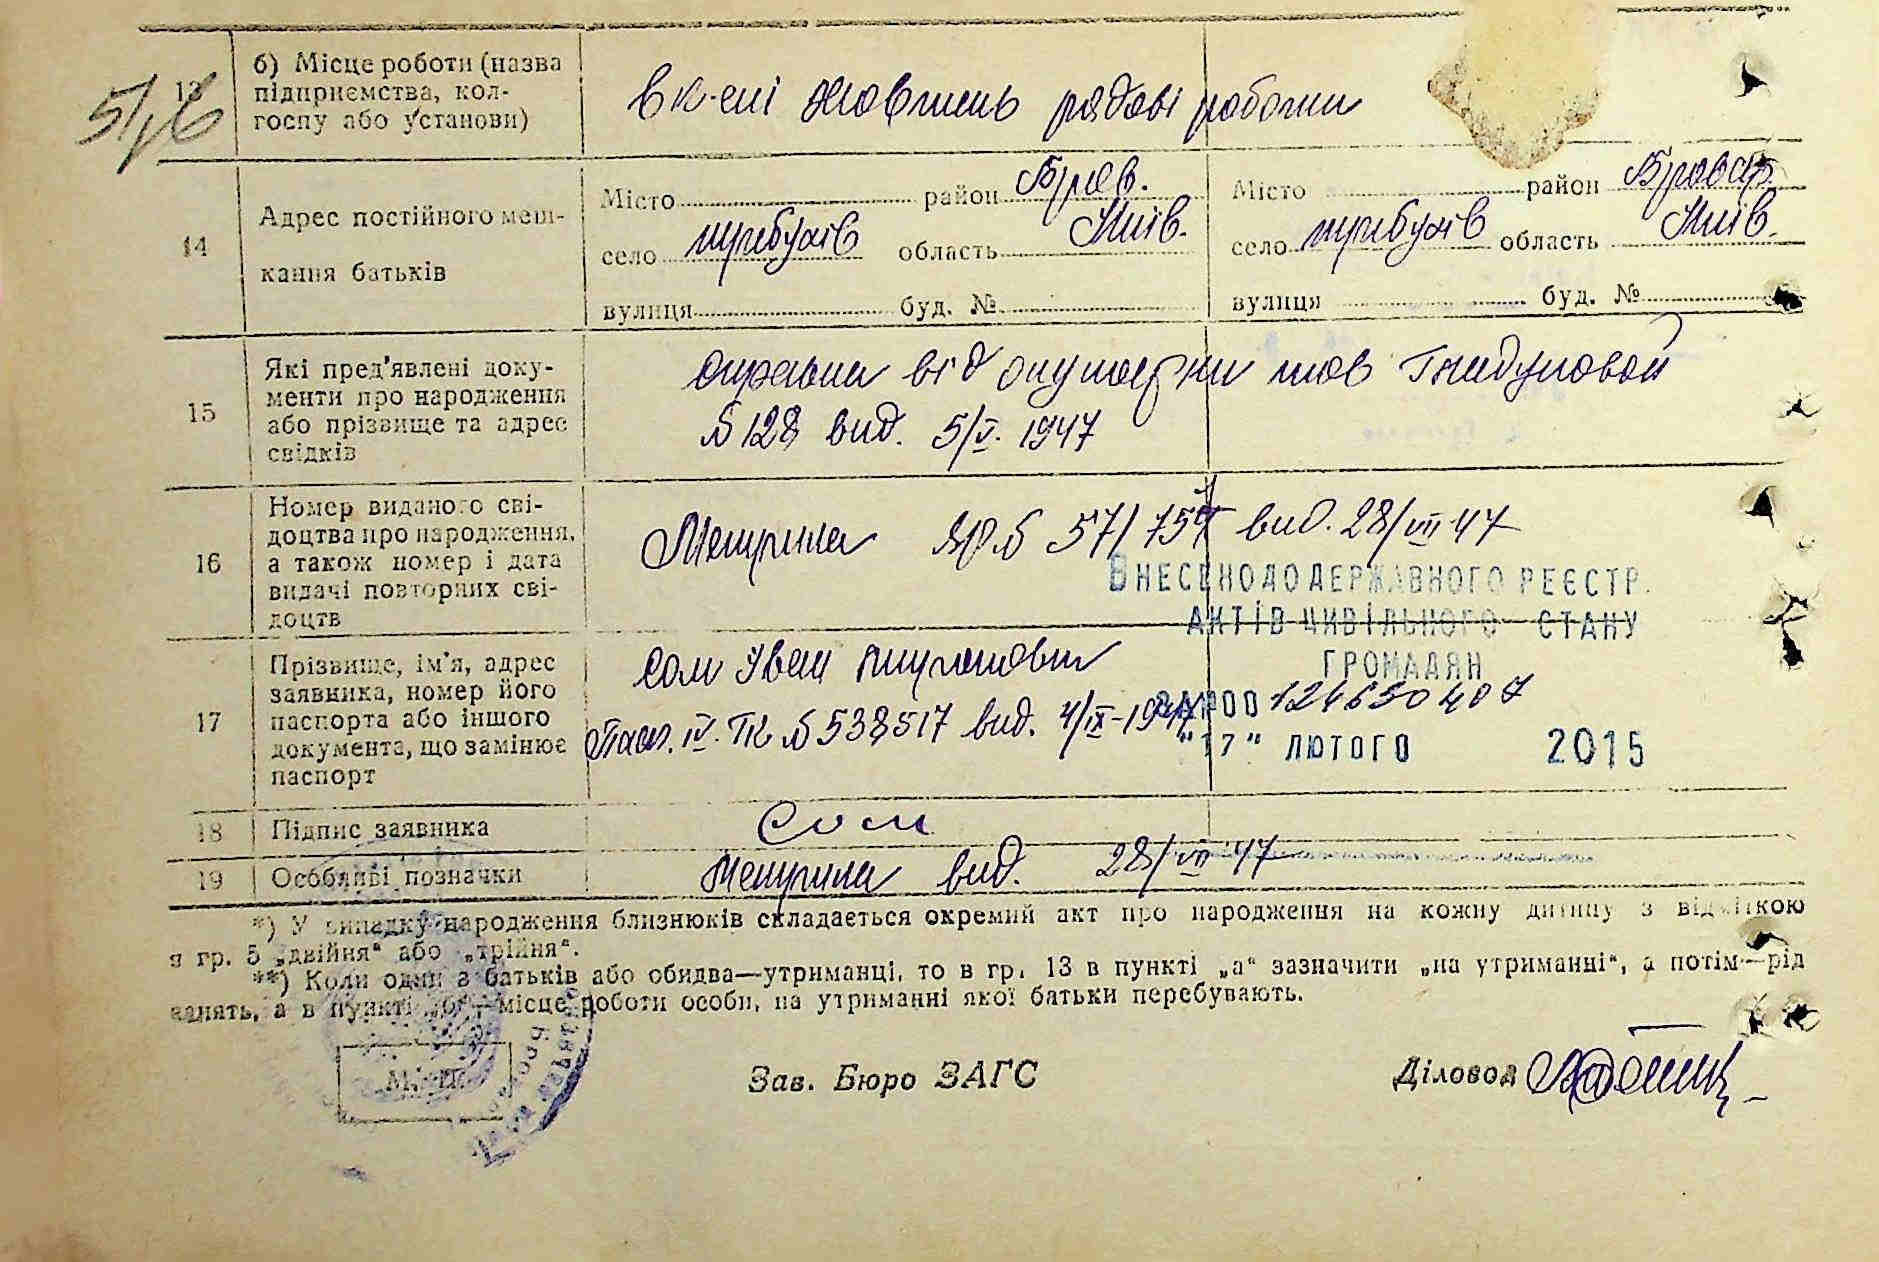 13
б) Місце роботи (назва
підприємства, кол-
госпу або установи)
в к-спі Жовтень рядові робочі
14
Адрес постійного меш-
кання батьків
Місто район Бров. Місто район Бровар.
село требухів область Київ. село требухів область Київ.
вулиця буд. № вулиця буд. №
15
Які пред'явлені доку-
менти про народження
або прізвище та адрес
свідків
справка від акушерки тов
№ 128 вид. 5/V. 1947
16
Номер виданого сві-
доцтва про народження,
а також номер і дата
видачі повторних сві-
доцтв
№ 57/ вид. 28/VII 47
ВНЕСЕНО ДО ДЕРЖАВНОГО РЕЄСТР.
АКТІВ ЦИВІЛЬНОГО СТАНУ
ГРОМАДЯН
17
Прізвище, ім'я, адрес
заявника, номер його
паспорта або іншого
документа, що замінює
паспорт
Сом Іван
Пасп. IV. ТК № 538517 вид. 4/IX-1947
ЗА №00124650407
"17" ЛЮТОГО 2015
18 Підпис заявника Сом
19 Особливі позначки вид. 28/VII 47
*) У випадку народження близнюків складається окремий акт про народження на кожну дитину з відміткою
в гр. 5 „двійня“ або „трійня“.
**) Коли один з батьків або обидва—утриманці, то в гр. 13 в пункті „а“ зазначити „на утриманні“, а потім—рід
занять, а в пункті „б“—місце роботи особи, на утриманні якої батьки перебувають.
М. П.
Зав. Бюро ЗАГС
Діловод